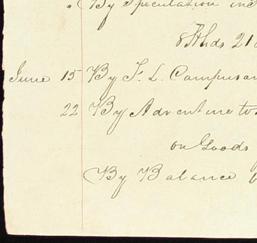 By Speculation in
8 Hhds 21
June 15 By F. L. Campusan
22 By Adventure to
on Goods
By Balance